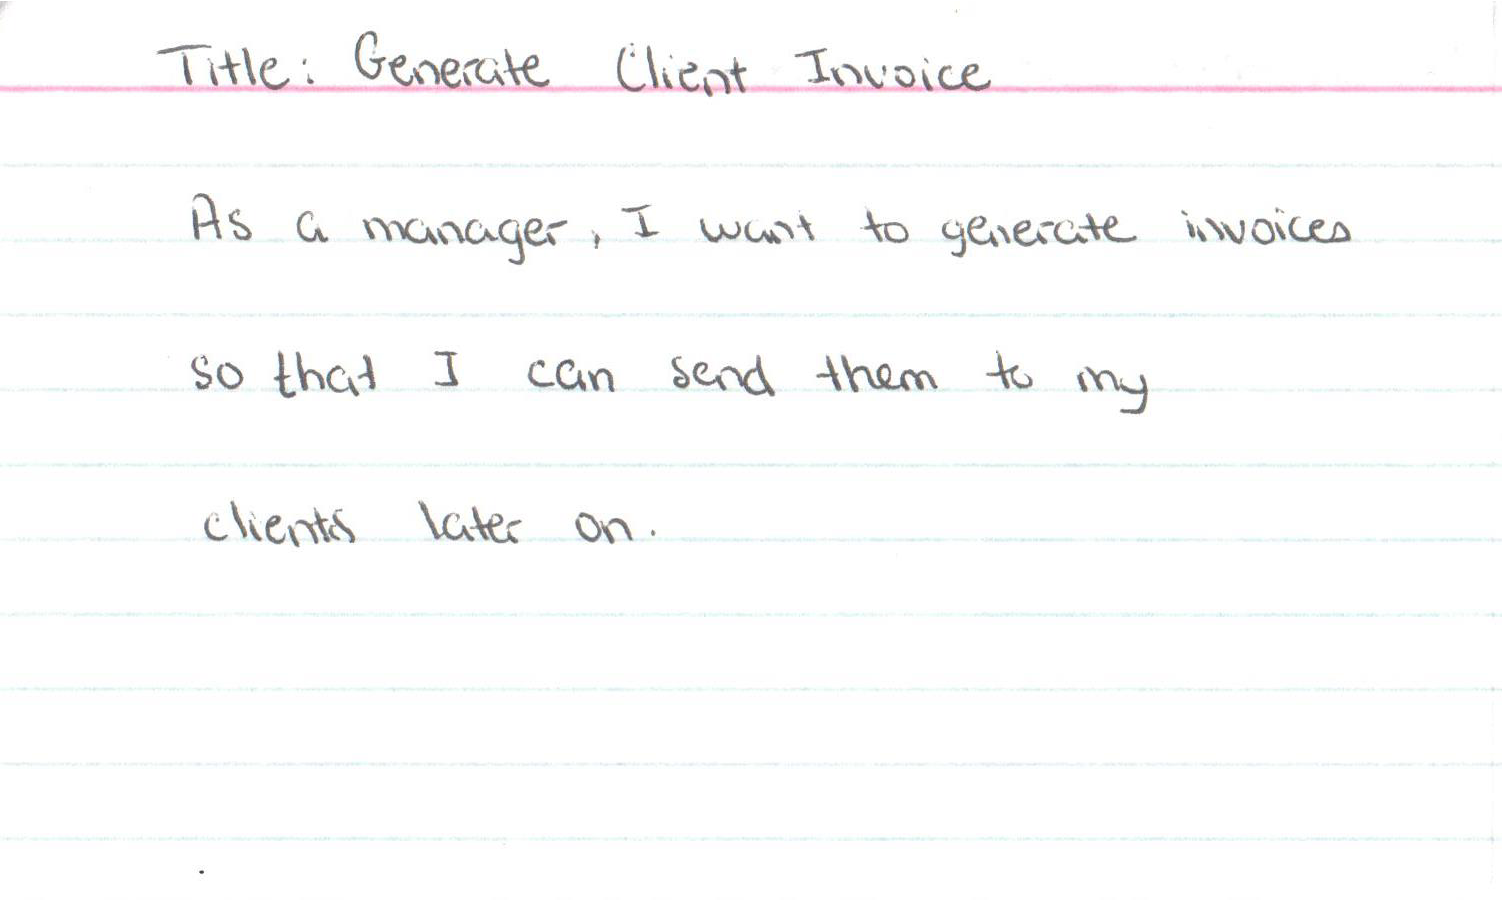 Title: Generate Client Invoice
As a manager, I want to generate invoices
so that I can send them to my
clients later on.